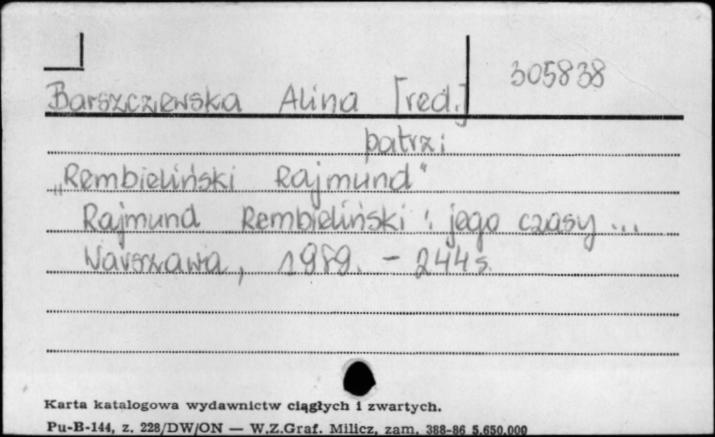 305838
Barszczewska Alina [red.]
patrzi
„Rembieliński Rajmund"
Rajmund Rembieliński i jego czasy ...
Warszawa, 1989. - 244 s.
Karta katalogowa wydawnictw ciągłych i zwartych.
Pu-B-144, z. 228/DW/ON — W.Z.Graf. Milicz, zam. 388-86 5.650.000